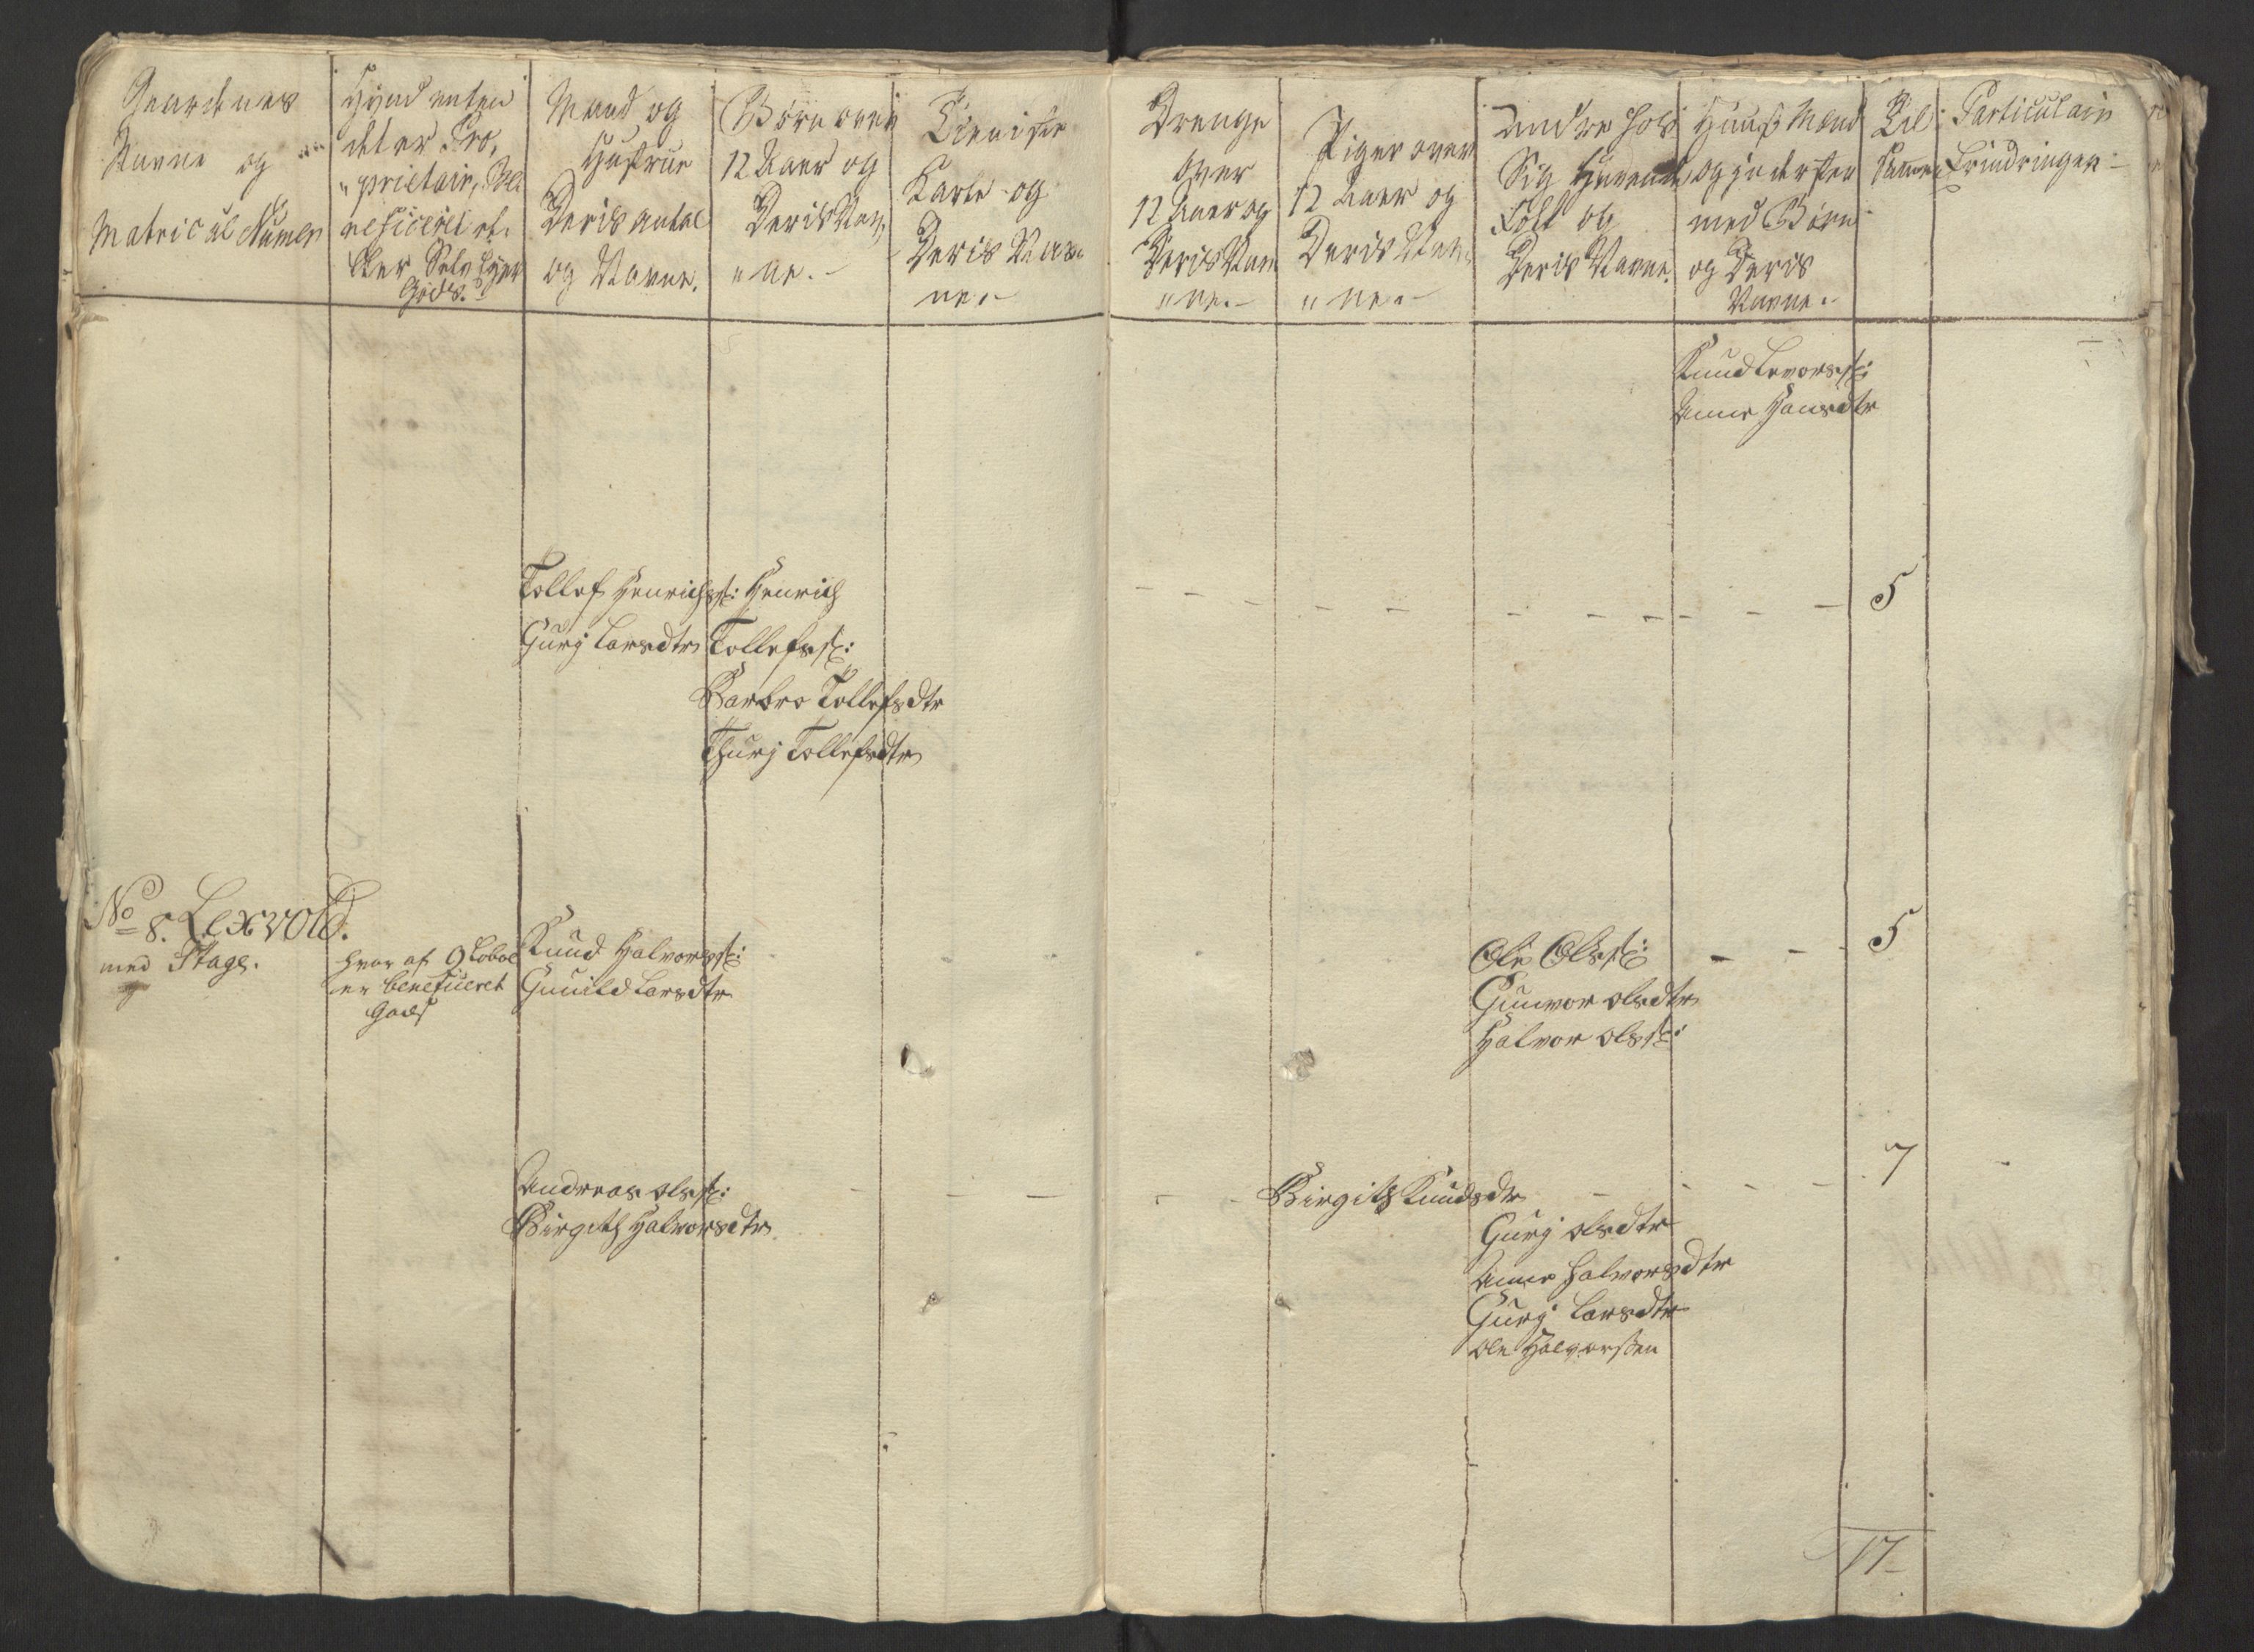 Gaardenes
Navne og
Matricul Numer
Hvad enten
det er Pro,
"prietair, Be
neficeret el.
ller Selv Eyer
Gods.
Mand og
Hustrue
Deris Antal
og Navne.
Børn over
12 Aaer og
Deris Nav,
"ne.
Tieniste
Karle og
Deris Nav,
ne.
Drenge
over
12 Aaer og
Deris Nav
"ne.
Piger over
12 Aaer og
Deris Nav,
"ne.
Andre hos
Sig Havende
Folk og
Deris Navne.
Huus Mænd
og Inderster
med Børn
og Deris
Navne.
Til
sammen
Particulair
Erindringer
Knud Levorss:
Anne Hansdtr
Tollef Henrichss: Henrich 5
Gurj Larsdtr Tollefss:
Barbro Tollefsdtr
Thurj Tollefsdtr
No 8. Lexvold.
med Stage.
hvor af 9 Lobol
er beneficeret
Gods
Knud Halvorss:
Gunild Larsdtr
Ole Olss: 5
Gunvor Olsdtr
Halvor Olss:
Andreas Olss: Birgith Knudsdtr 7
Birgith Halvorsdtr
Gurj Olsdtr
Anne Halvorsdtr
Gurj Larsdtr
Ole Halvorsen
17